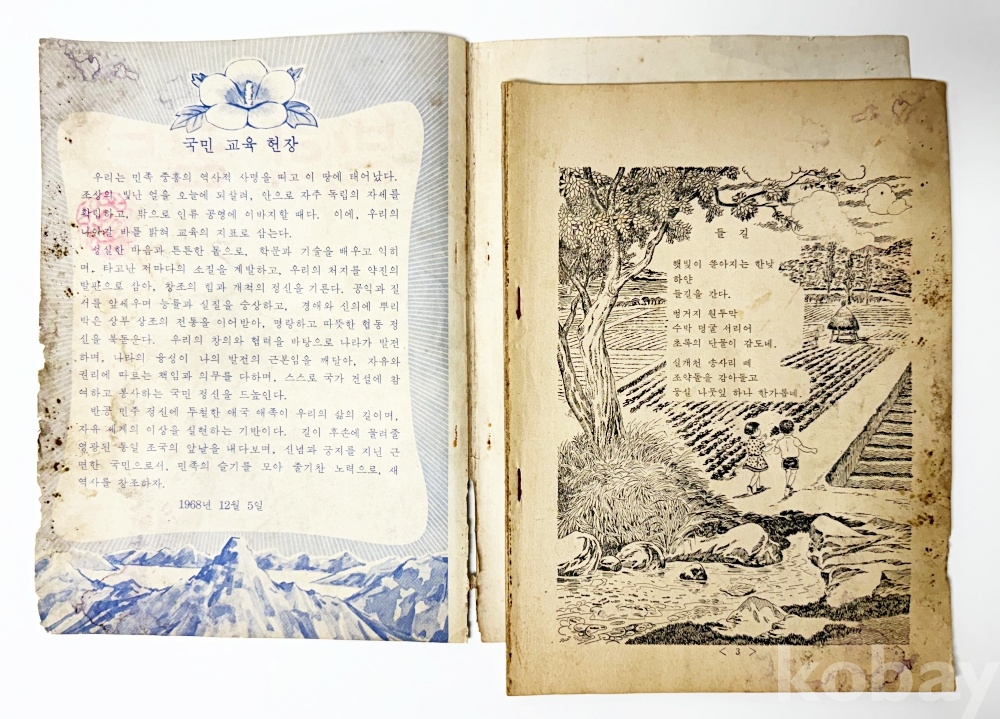 국민 교육 헌장
우리는 민족 중흥의 역사적 사명을 띠고 이 땅에 태어났다.
조상의 빛난 얼을 오늘에 되살려, 안으로 자주 독립의 자세를
확립하고, 밖으로 인류 공영에 이바지할 때다. 이에, 우리의
나아갈 바를 밝혀 교육의 지표로 삼는다.
성실한 마음과 튼튼한 몸으로, 학문과 기술을 배우고 익히
며, 타고난 저마다의 소질을 계발하고, 우리의 처지를 약진의
발판으로 삼아, 창조의 힘과 개척의 정신을 기른다. 공익과 질
서를 앞세우며 능률과 실질을 숭상하고, 경애와 신의에 뿌리
박은 상부 상조의 전통을 이어받아, 명랑하고 따뜻한 협동 정
신을 북돋운다. 우리의 창의와 협력을 바탕으로 나라가 발전
하며, 나라의 융성이 나의 발전의 근본임을 깨달아, 자유와
권리에 따르는 책임과 의무를 다하며, 스스로 국가 건설에 참
여하고 봉사하는 국민 정신을 드높인다.
반공 민주 정신에 투철한 애국 애족이 우리의 삶의 길이며,
자유 세계의 이상을 실현하는 기반이다. 길이 후손에 물려줄
영광된 통일 조국의 앞날을 내다보며, 신념과 긍지를 지닌 근
면한 국민으로서, 민족의 슬기를 모아 줄기찬 노력으로, 새
역사를 창조하자.
1968년 12월 5일
들 길
햇빛이 쏟아지는 한낮
하얀
들길을 간다.
벙거지 원두막
수박 덩굴 서리어
초록의 단물이 감도네.
실개천 송사리 떼
조약돌을 감아돌고
둥실 나뭇잎 하나 한가롭네.
< 3 >
kobay